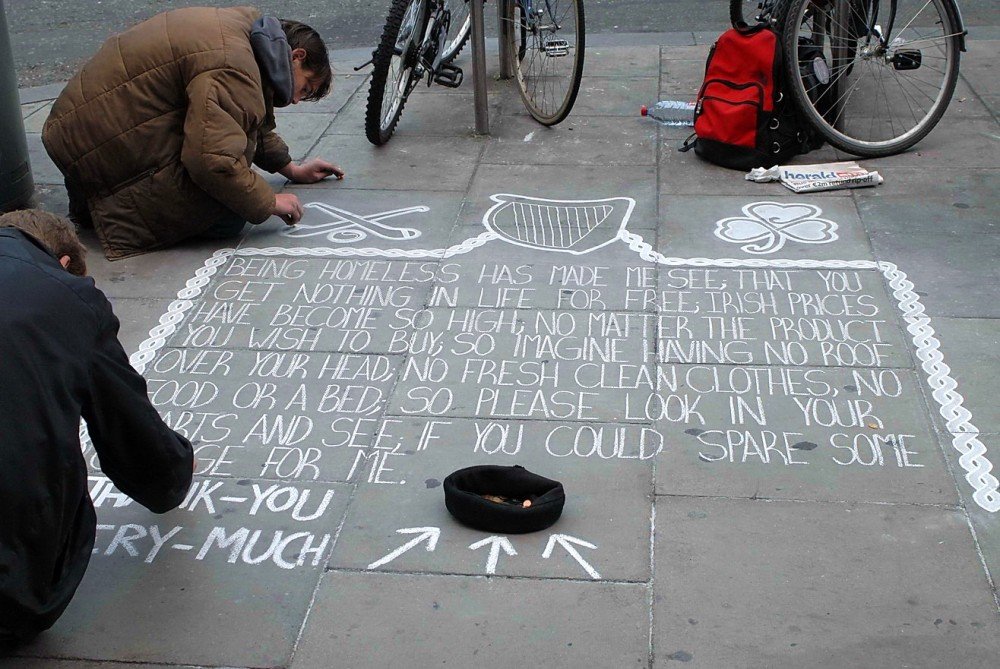 herald
over €2m refund rip off
BEING HOMELESS HAS MADE ME SEE, THAT YOU
GET NOTHING IN LIFE FOR FREE, IRISH PRICES
HAVE BECOME SO HIGH, NO MATTER THE PRODUCT
YOU WISH TO BUY, SO IMAGINE HAVING NO ROOF
OVER YOUR HEAD, NO FRESH CLEAN CLOTHES, NO
FOOD OR A BED, SO PLEASE LOOK IN YOUR
AND SEE, IF YOU COULD SPARE SOME
FOR ME.
THANK-YOU
VERY-MUCH